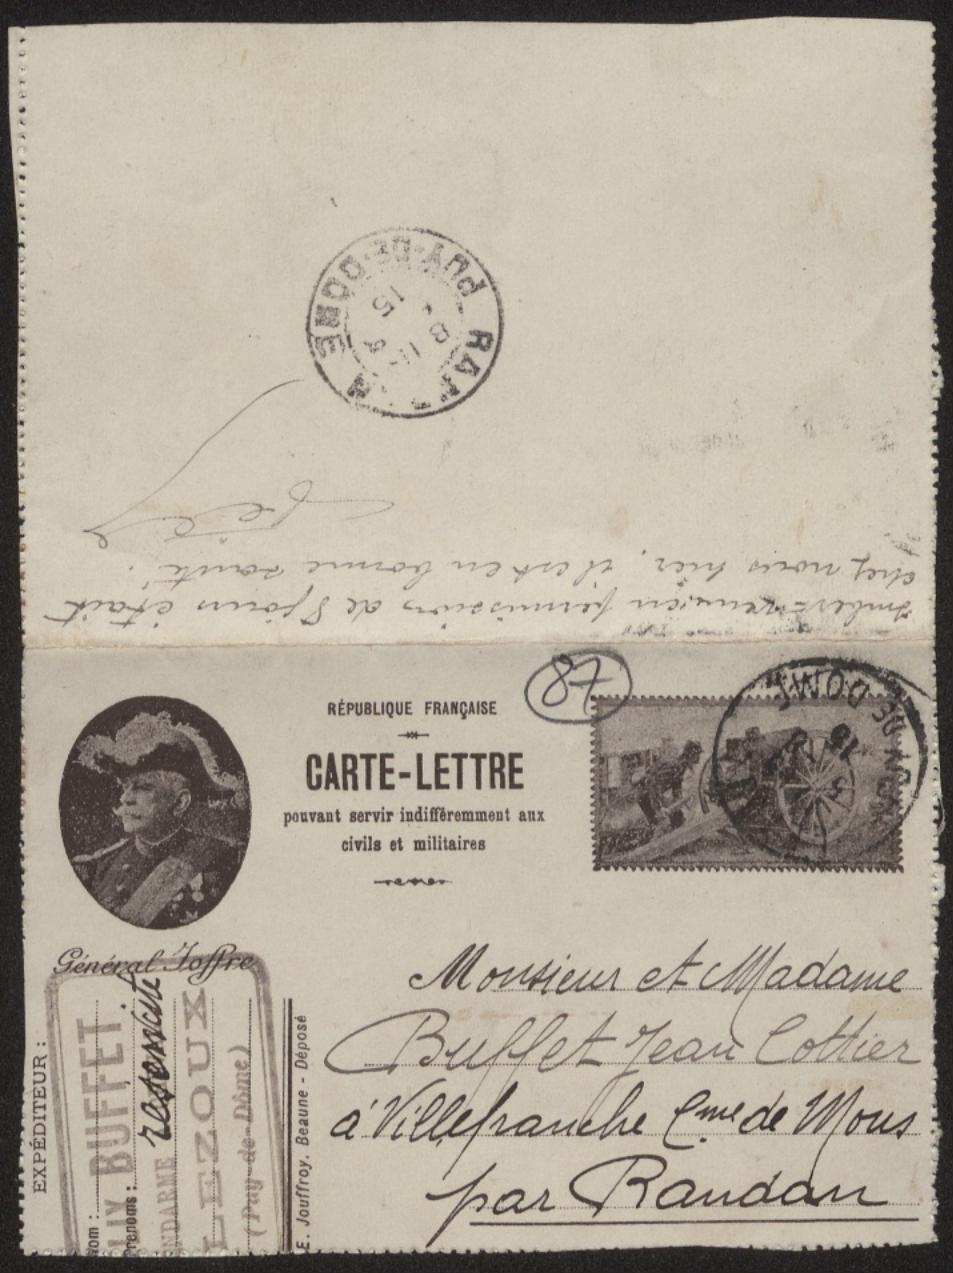 PUY-DE-DOME
15
chez nous hier, il est en bonne santé.
permission de 8 jours était
87
RÉPUBLIQUE FRANÇAISE
CARTE-LETTRE
pouvant servir indifféremment aux
civils et militaires
DOME
15
Général Joffre
Monsieur et Madame
Buffet Jean Cottier
à Villefranche Cme de Mons
par Randan
EXPÉDITEUR :
Nom :
BUFFET
Prénoms :
GENDARME
LEZOUX
(Puy-de-Dôme)
E. Jouffroy. Beaune - Déposé